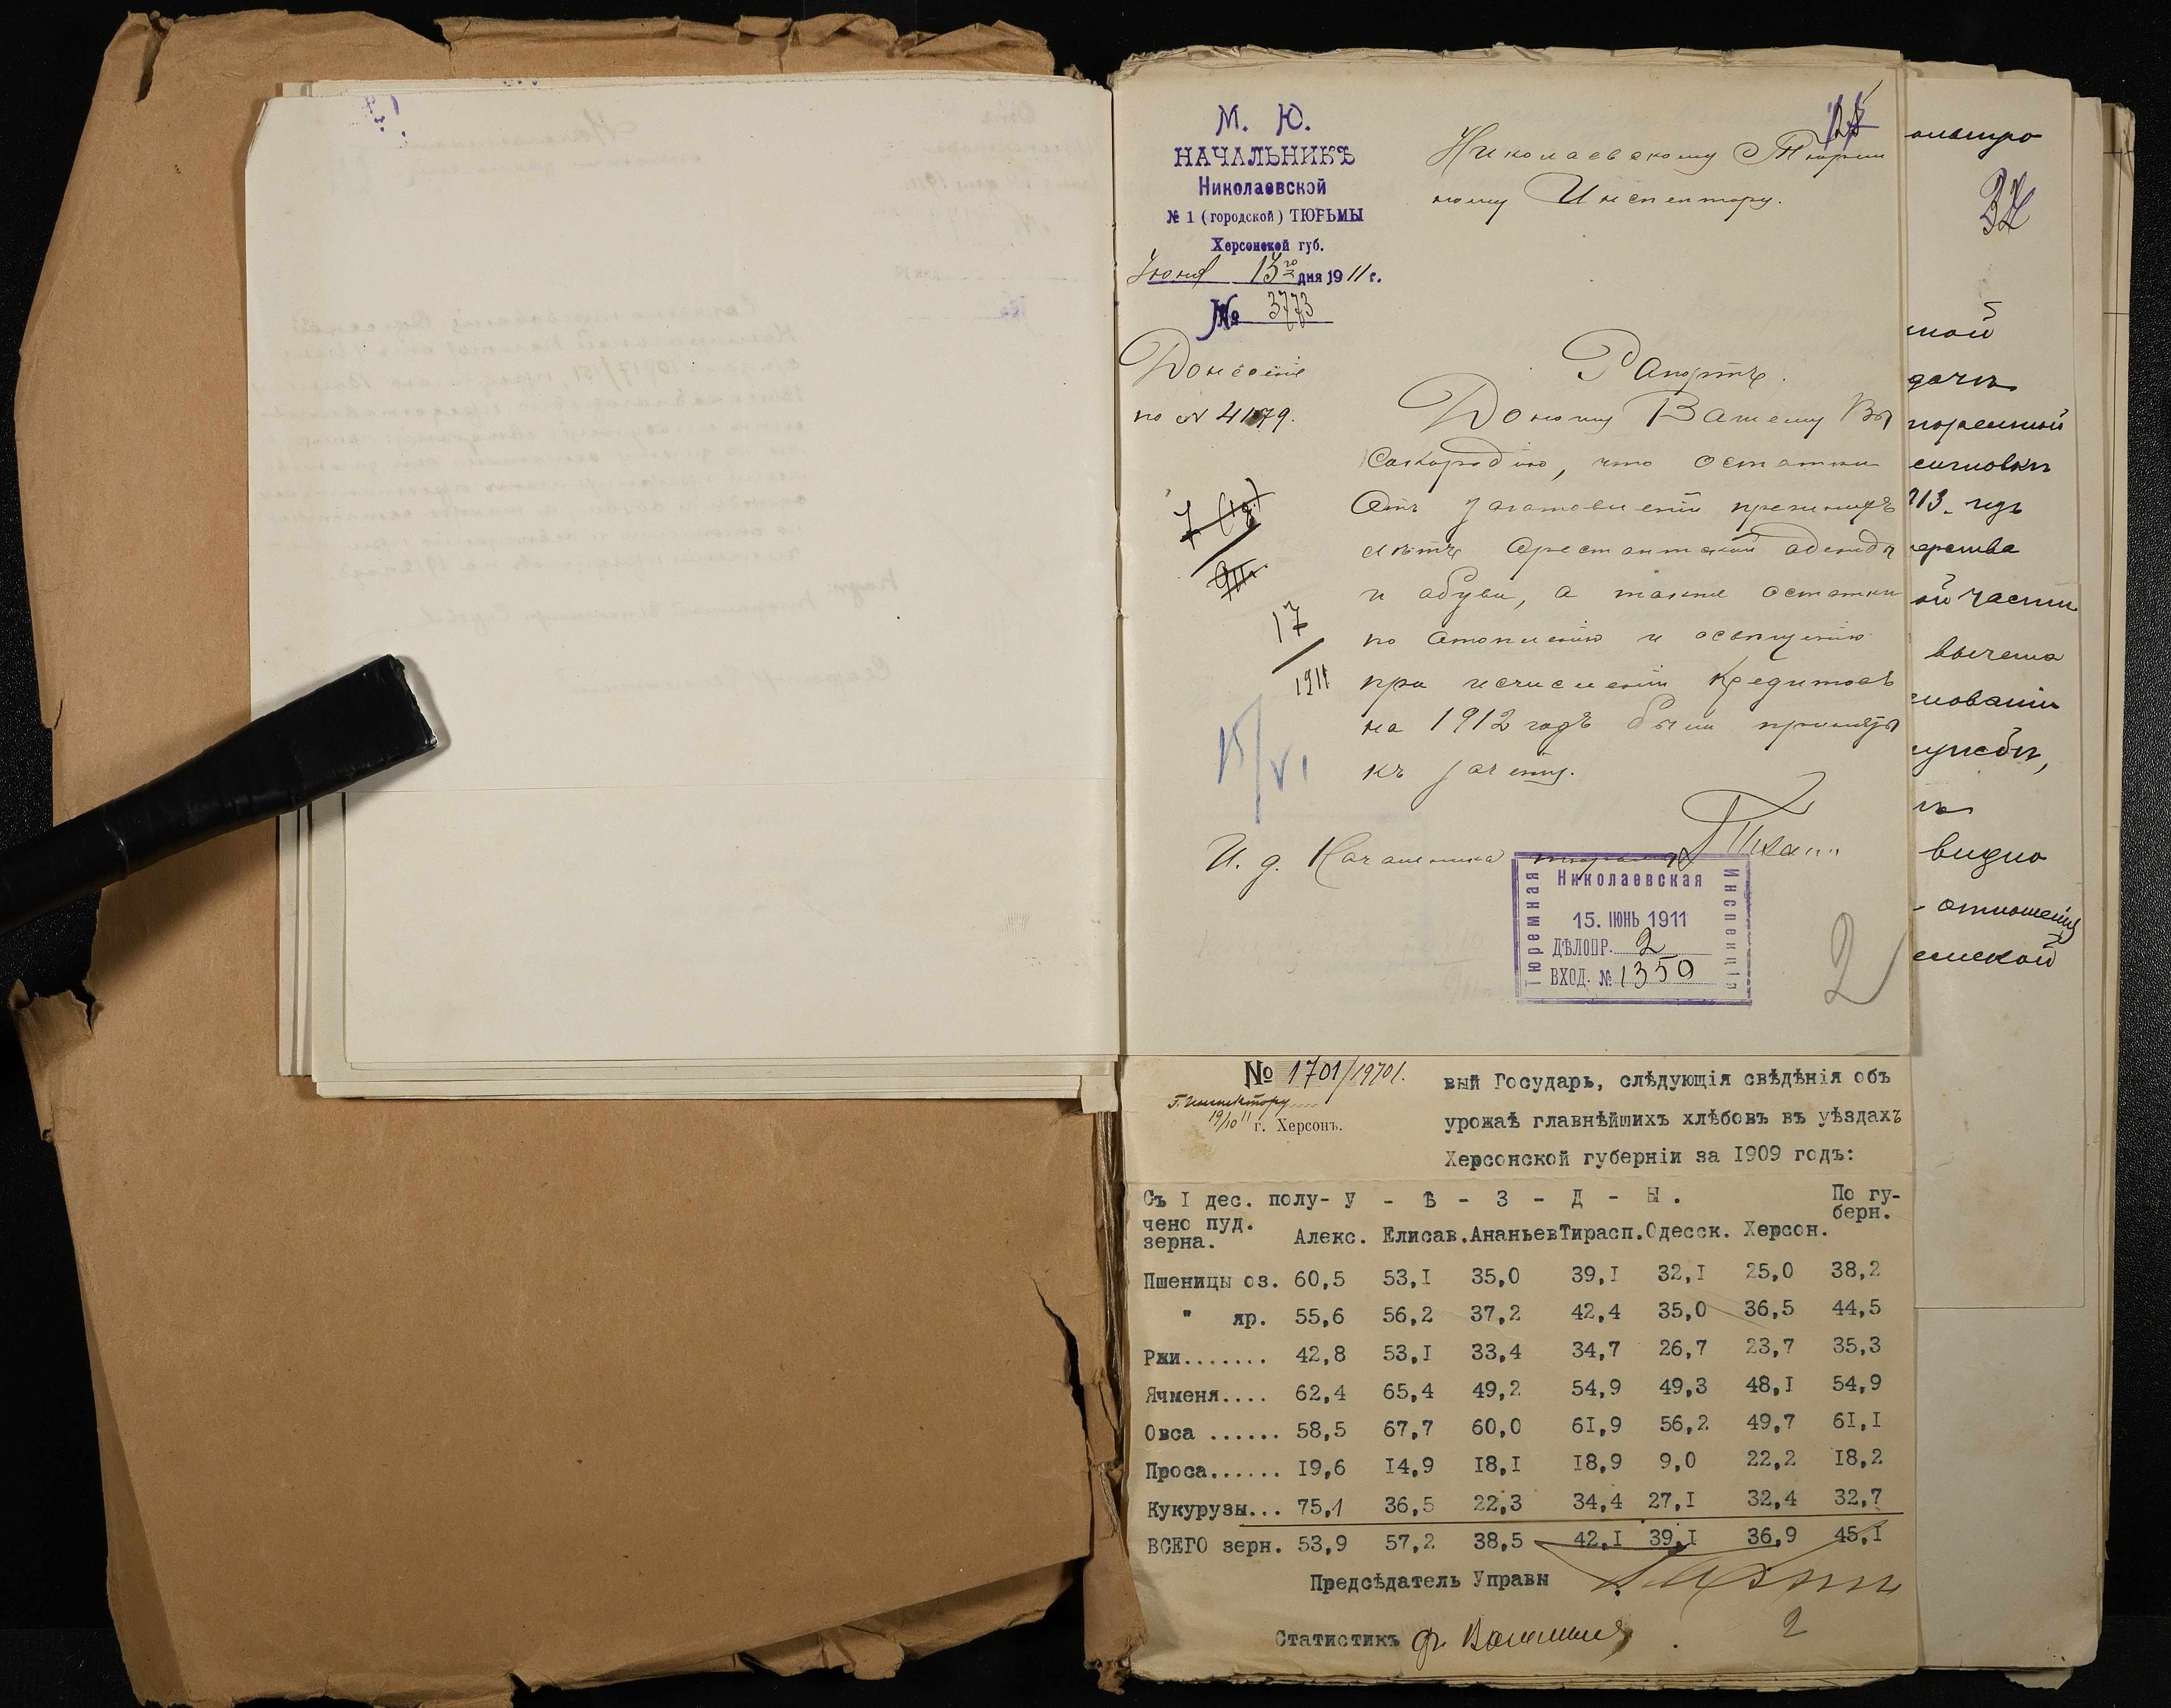 М. Ю.
НАЧАЛЬНИКЪ
Николаевской
№ 1 (городской) ТЮРЬМЫ
Херсонской губ.
Іюня 13го дня 1911 г.
№ 3773
Донесеніе
по № 4179.
Николаевскому Тюрем
ному Инспектору.
Рапортъ.
Доношу Вашему Вы
сокородію, что остатки
отъ заготовленій прежнихъ
лѣтъ арестантской одежды
и обуви, а также остатки
по отопленію и освѣщенію
при исчисленіи кредитовъ
на 1912 годъ были приняты
къ зачету.
17
1911
15/VI
И. д. Начальника тюрьмы
Николаевская
Тюремная
Инспекція
15. ІЮНЬ 1911
ДѢЛОПР. 2
ВХОД. № 1350
2
ольтро
мой
дачъ
сигновки
913. годъ
ой части
вычета
нованіи
ужбы,
видно
отношенія
№ 1701/19701.
Г. Инспектору
19/10 11 г. Херсонъ.
вый Государь, слѣдующія свѣдѣнія объ
урожаѣ главнѣйшихъ хлѣбовъ въ уѣздахъ
Херсонской губерніи за I909 годъ:
Съ I дес. полу- У - Ѣ - З - Д - Ы . По гу-
чено пуд. берн.
зерна. Алекс. Елисав. Ананьев Тирасп. Одесск. Херсон.
Пшеницы оз. 60,5 53,I 35,0 39,I 32,I 25,0 38,2
" яр. 55,6 56,2 37,2 42,4 35,0 36,5 44,5
Ржи....... 42,8 53,I 33,4 34,7 26,7 23,7 35,3
Ячменя.... 62,4 65,4 49,2 54,9 49,3 48,I 54,9
Овса ...... 58,5 67,7 60,0 6I,9 56,2 49,7 6I,I
Проса...... I9,6 I4,9 I8,I I8,9 9,0 22,2 I8,2
Кукурузы... 75,1 36,5 22,3 34,4 27,I 32,4 32,7
ВСЕГО зерн. 53,9 57,2 38,5 42,I 39,I 36,9 45,I
Предсѣдатель Управы
Статистикъ
2